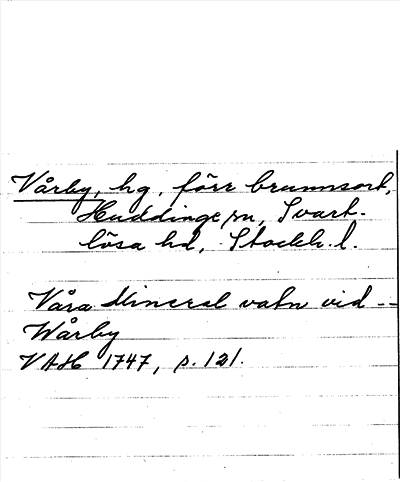 Vårby, hg, förr brunnsort,
Huddinge sn, Svart-
lösa hd, Stockh. l.
Våra Mineral vatn vid --
Wårby
VAH 1747, s. 121.